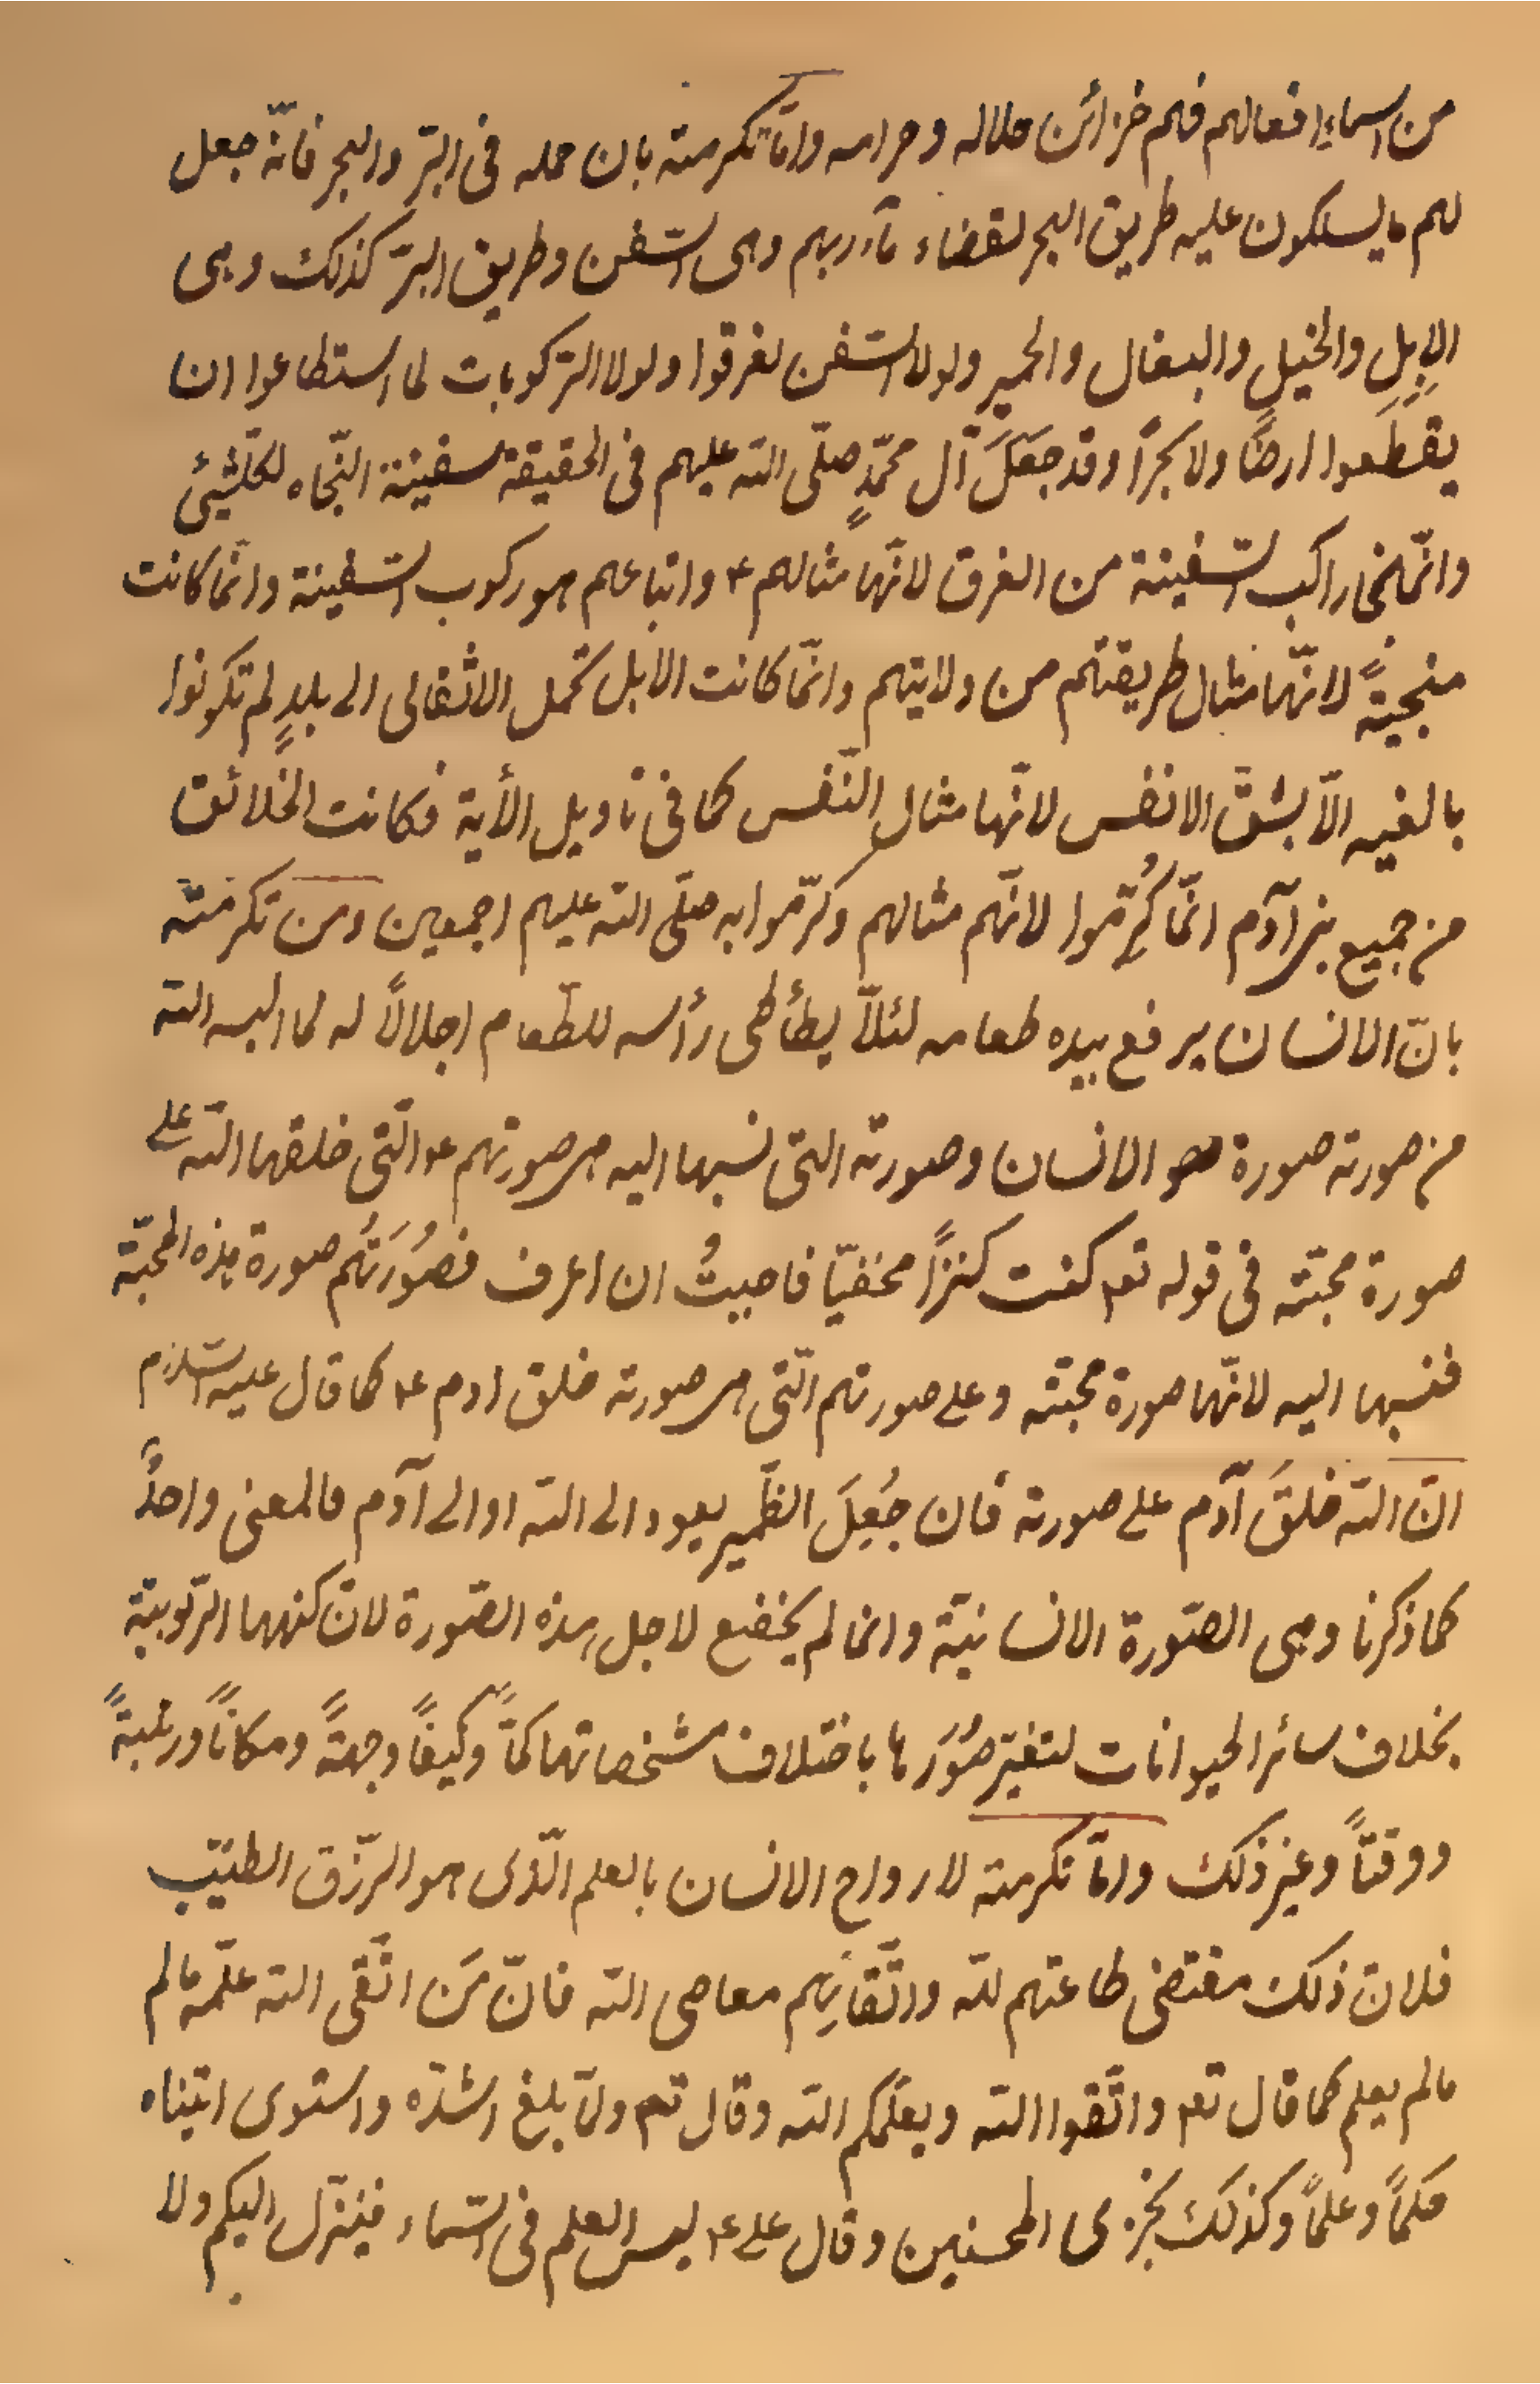 من اسماء افعالهم فهم خزائن حلاله وحرامه وامّا تكرمته بان حمله فى البرّ والبحر فانّه جعل
لهم ما يسلكون عليه طريق البحر لقضاء مآربهم وهى السّفن وطريق البرّ كذلك وهى
الإبِلِ والخيل والبغال والحمير ولولا السّفن لغرقوا ولولا الرّكوبات لما استطاعوا ان
يقطَعوا ارضًا ولا بحرًا وقد جَعَلَ آل محمّدٍ صلّى الله عليهم فى الحقيقة سفينة النّجاه لكلّشئ
وانّما نجا راكب السّفينة من الغرق لانّها مثالهم ع واتباعهم هو ركوب السّفينة وانّما كانت
منجيةً لانّها مثال طريقتهم من ولايتهم وانّما كانت الابل تحمل الاثقالى الى بلدٍ لم تكونوا
بالغيه الّا بشقّ الانفس لانّها مثال النّفس كما فى تاويل الأية فكانت الخلائق
من جميع بنى آدم انّما كُرِّموا لانّهم مثالهم وكرّموا به صلّى الله عليهم اجمعين ومن تكرمته
بانّ الانسان يرفع بيده طعامه لئلّا يطأطى رأسه للطّعام اجلالًا له لما البسه الله
من صورته صورة هو الانسان وصورته التى نسبها اليه هى صورتهم ع الّتى خلقها الله على
صورة محبّته فى قوله تع كنت كنزًا مخفيّا فاحببتُ ان اعرف فصُوُرَتُهم صورة هذه المحبّة
فنسبها اليه لانّها صورة محبّته وعلى صورتهم الّتى هى صورته خلق ادم ع كما قال عليه السّلام
انّ الله خلقَ آدم على صورته فان جُعِلَ الظّمير يعود الى الله او الى آدم فالمعنى واحدٌ
كما ذكرنا وهى الصّورة الانسانيّة وانما لم يخضع لاجل هذه الصّورة لانّ كنهها الرّبوبيّة
بخلاف سائر الحيوانات لتغيّر صُوَرها باختلاف مشخصاتها كمّاً وكيفًا وجهةً ومكانًا ورتبةً
ووقتًا وغير ذلك وامّا تكرمته لارواح الانسان بالعلم الّذى هو الرّزق الطيّب
فلانّ ذلك مقتضى طاعتهم لله واتّقائِهم معاصى الله فانّ مَن اتّقى الله علّمه ما لم
ما لم يعلم كما قال تع واتّقوا الله ويعلّمكم الله وقال تع ولمّا بلغ اشدّه واستوى اتيناه
حكمًا وعلمًا وكذلك نجزى المحسنين وقال على ع ليس العلم فى السّماء فينزل اليكم ولا